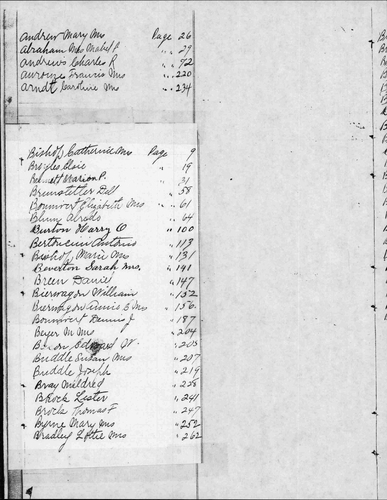 Andrew Mary Mrs Page 26
Abraham Mrs Mabel P. " 29
Andrews Charles R " 72
Francis Mrs " 220
Arndt Caroline Mrs " 234
Bishop Catherine Mrs Page 9
Broyles Elsie " 19
Marion P. " 31
Brunstetter Dell " 58
Bonnwert Elizabeth Mrs " 61
Blum " 64
Burton Harry O " 100
" 113
Bishop Marie Mrs " 131
Beveton Sarah Mrs. " 141
Breen Daniel " 147
Bierwagon William " 152
Bierwagon Annie E Mrs " 156
Bonnwert Dennis J " 187
Beyer M Mrs " 204
Edward W. " 205
Buddle Susan Mrs " 207
Buddle Joseph " 219
Bray Mildred " 225
Brock Lester " 241
Brock Thomas F " 247
Byrne Mary Mrs " 252
Bradley Lottie Mrs " 262